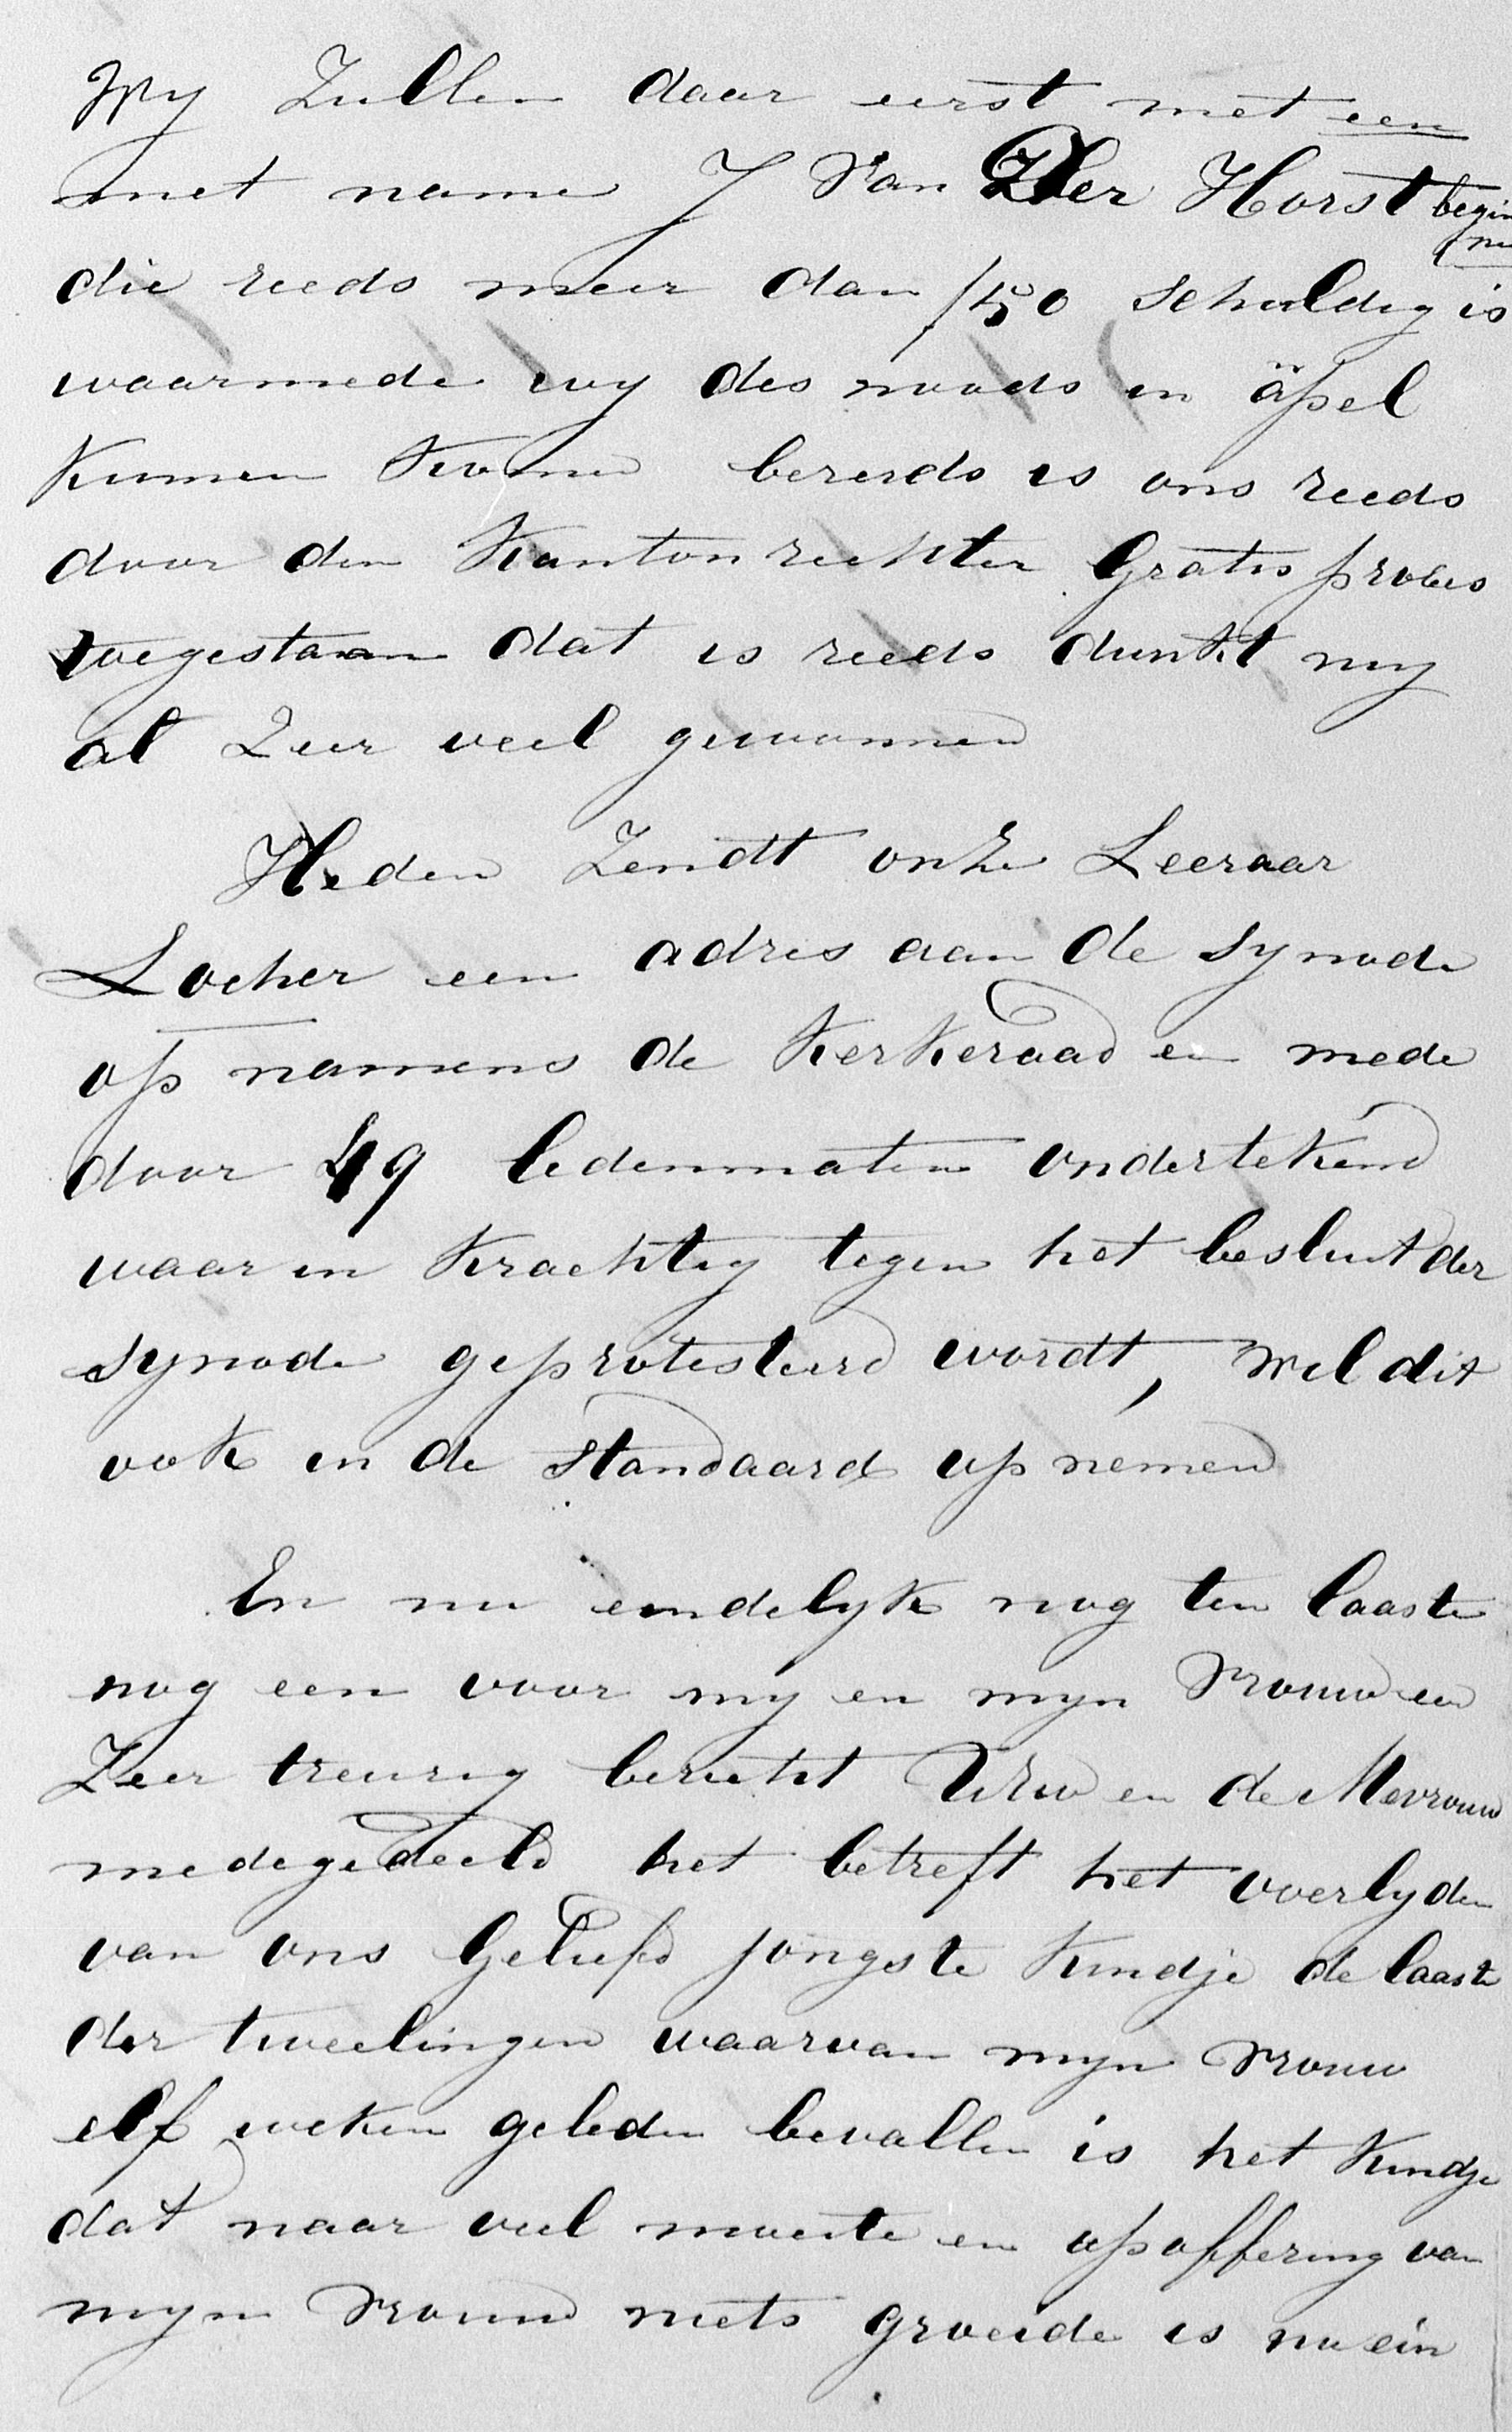 Wy Zullen daar eerst met een
met name J Van Der Horst begin
nen
die reeds meer dan ƒ50 schuldig is
waarmede wy des noods in äpel
Kunnen Komen bereids is ons reeds
door den Kantonrechter Gratis proces
toegestaan dat is reeds dunkt my
al Zeer veel gewonnen
Heden Zendt onze Leeraar
Locher een adres aan de Synode
op namens de KerKeraad en mede
door 49 ledenmaten ondertekend
waar in Krachtig tegen het besluit der
Synode geprotesteerd wordt, wel dit
ook in de Standaard op nemen
En nu eindelyk nog ten laaste
nog een voor my en myn Vrouw een
Zeer treurig bericht Urw en de Mevrouw
medegedeeld het betreft het overlyden
van ons Geliefd jongste Kindje de laaste
der tweelingen waarvan myn Vrouw
elf weken geleden bevallen is het Kindje
dat naar veel moeite en opoffering van
myn Vrouw niets groeide is nu ein